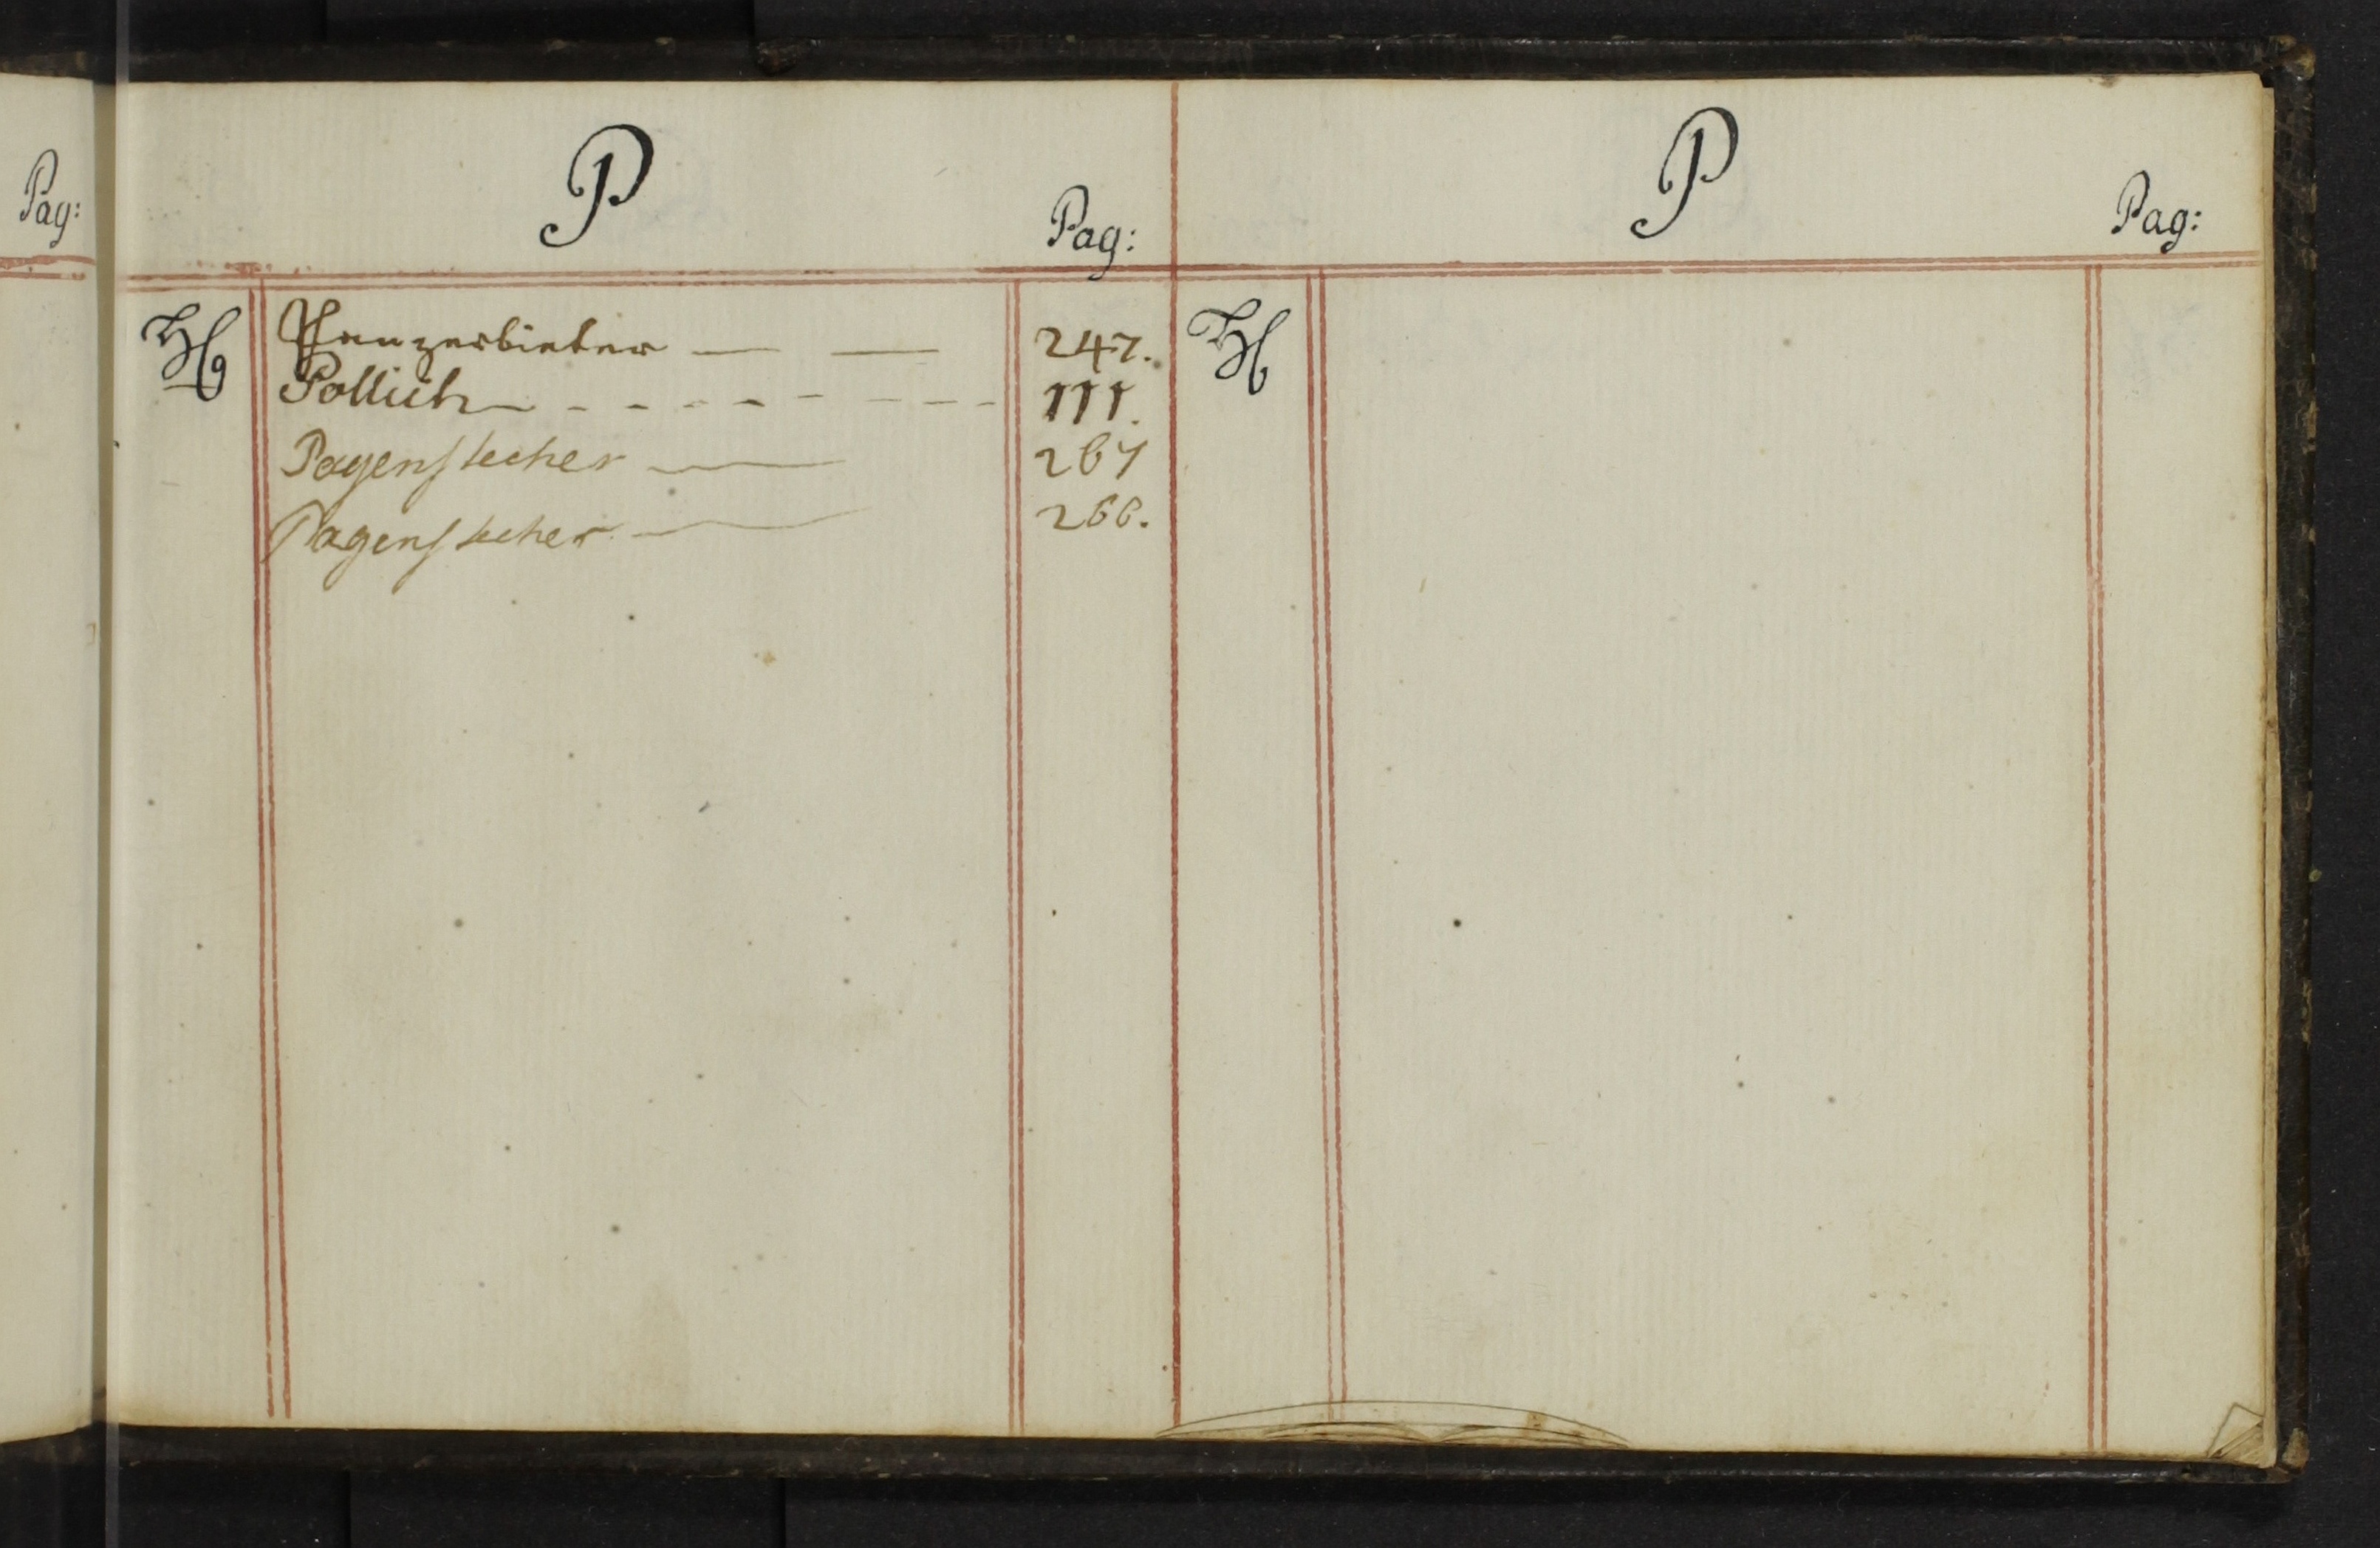 Pag:
P
Pag:
P
Pag:
H Panzerbieter — — 247.
Pollich - - - - - - - - 111.
Pagenstecher — 267
Pagenstecher — 266.